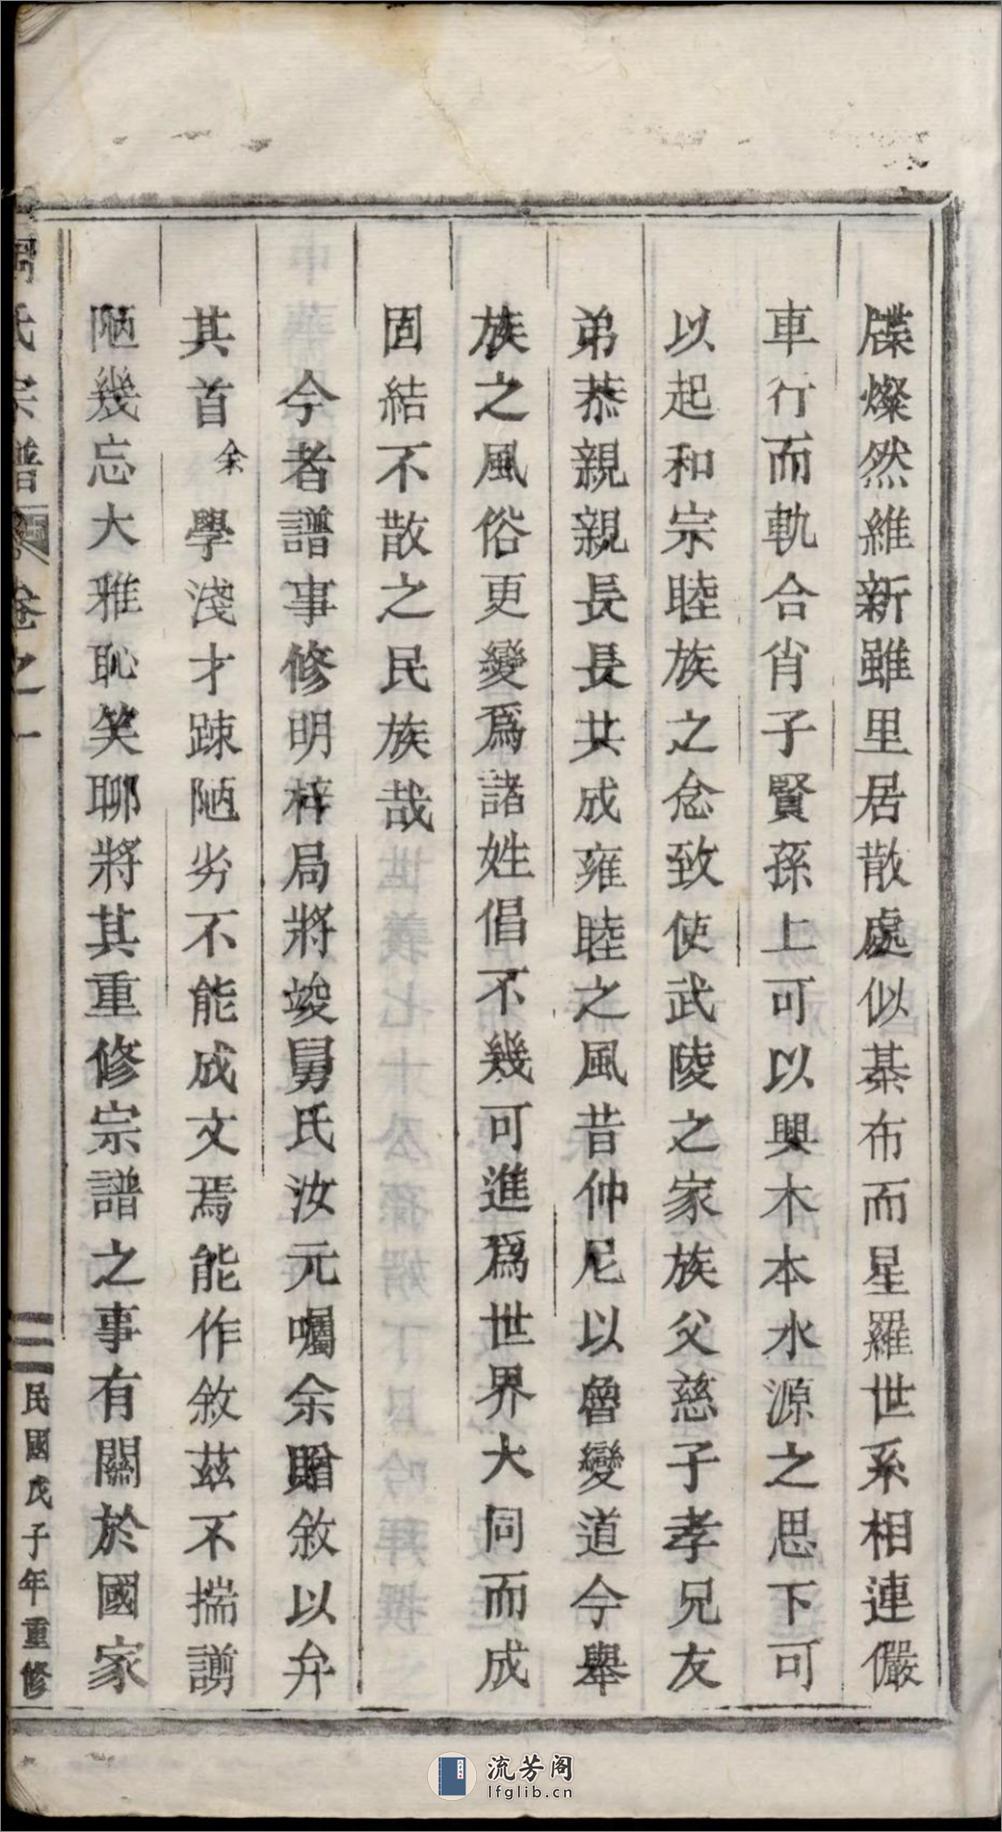 牒燦然維新雖里居散處似棊布而星羅世系相連儼
車行而軌合肖子賢孫上可以興木本水源之思下可
以起和宗睦族之念致使武陵之家族父慈子孝兄友
弟恭親親長長共成雍睦之風昔仲尼以魯變道今舉
族之風俗更變爲諸姓倡不幾可進爲世界大同而成
固結不散之民族哉
今者譜事修明梓局將竣舅氏汝元囑余贈敘以弁
其首余學淺才踈陋劣不能成文焉能作敘茲不揣謭
陋幾忘大雅恥笑聊將其重修宗譜之事有關於國家
氏宗譜 卷之一 三 民國戊子年重修
流芳阁
lfglib.cn